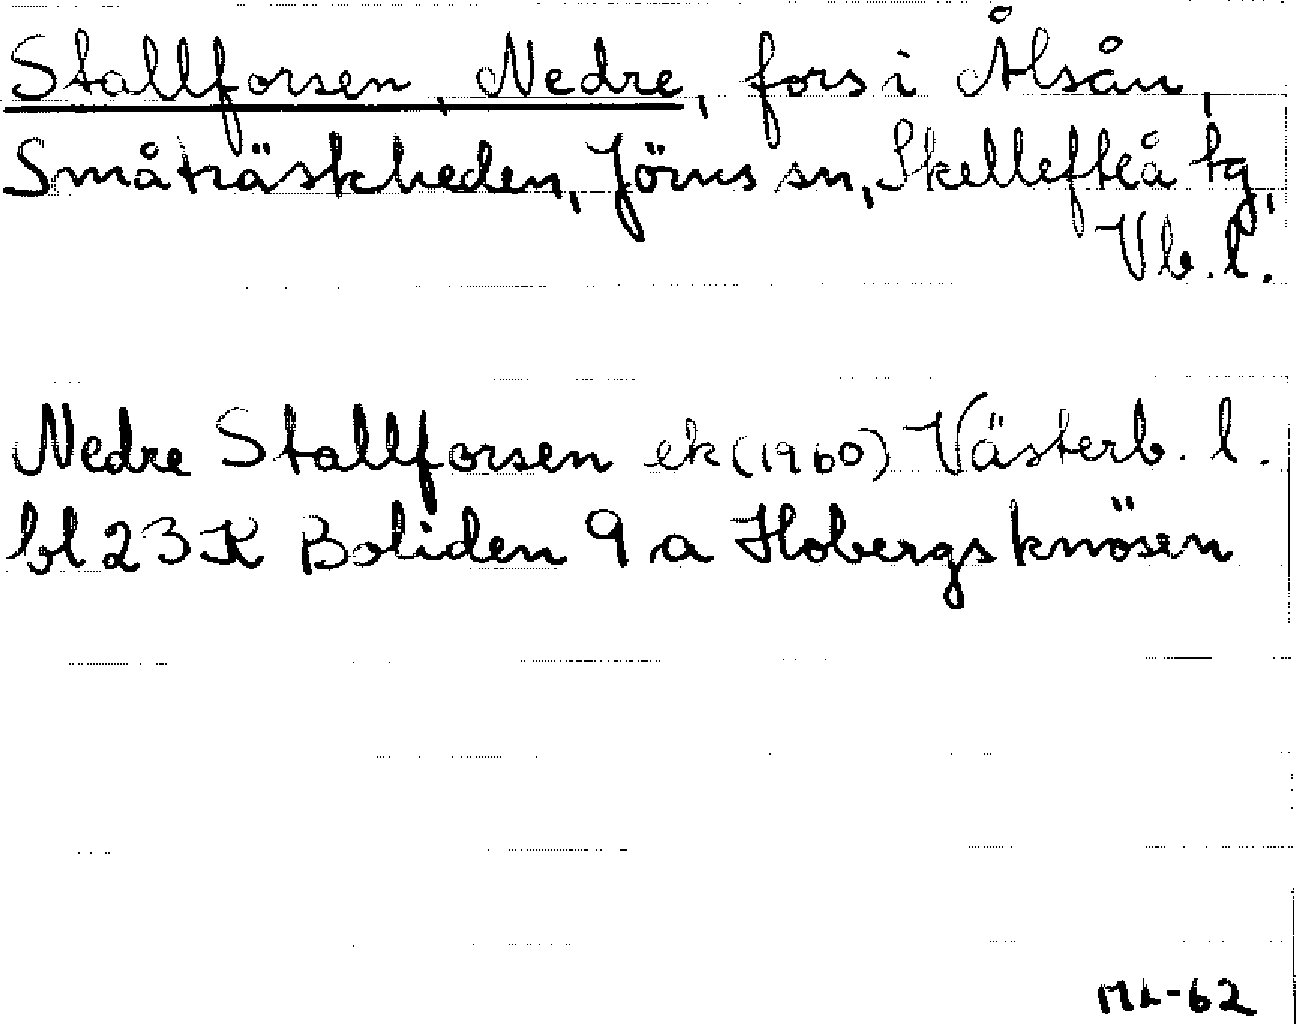 Stallforsen, Nedre, fors i Ålsån,
Småträskheden, Jörns sn, Skellefteå tg,
Vb. l.
Nedre Stallforsen ek (1960) Västerb. l.
bl 23 K Boliden 9 a Hobergsknösen
-62